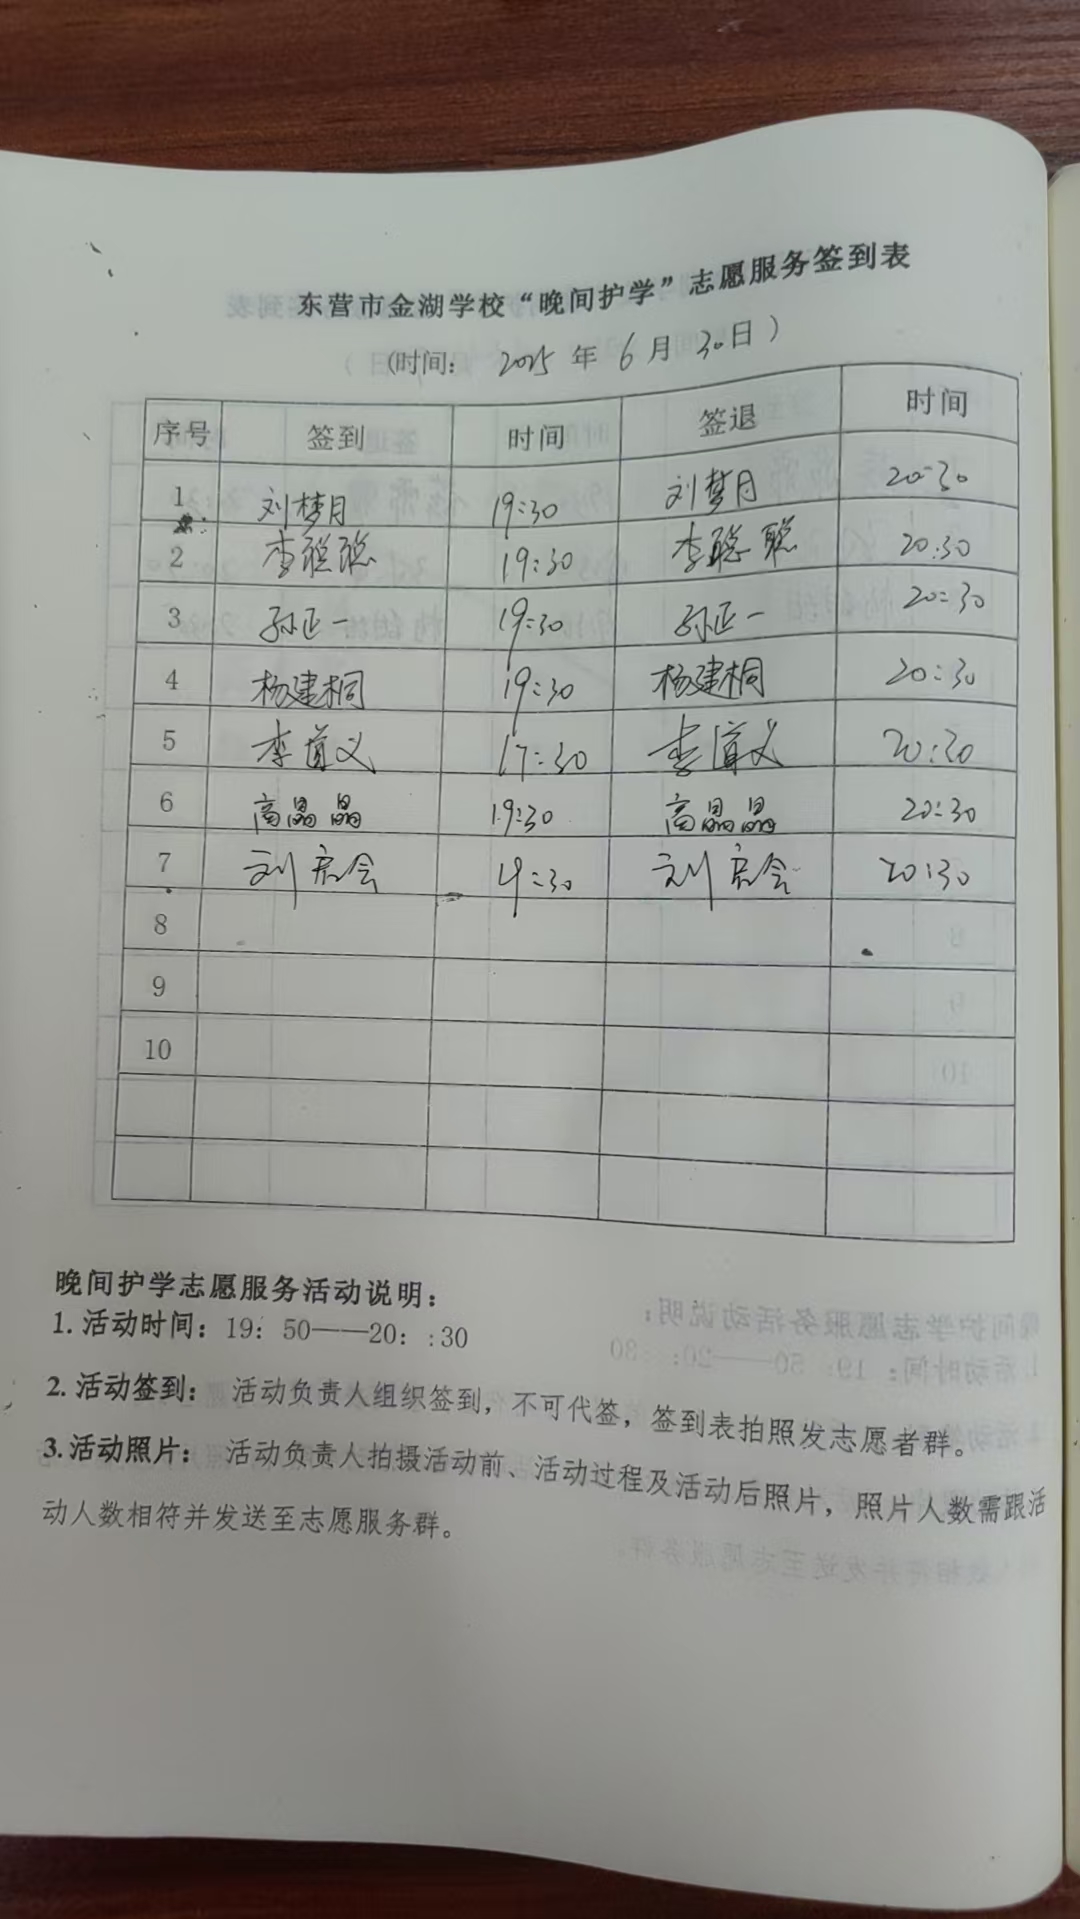 东营市金湖学校“晚间护学”志愿服务签到表
(时间： 2025 年 6 月 30日 )
序号 签到 时间 签退 时间
1 刘梦月 19:30 刘梦月 20:30
2 李聪聪 19:30 李聪聪 20:30
3 孙正一 19:30 孙正一 20:30
4 杨建桐 19:30 杨建桐 20:30
5 李道义 17:30 李道义 20:30
6 高晶晶 19:30 高晶晶 20:30
7 刘会 19:30 刘会 20:30
8
9
10
晚间护学志愿服务活动说明：
1. 活动时间：19：50——20：:30
2. 活动签到： 活动负责人组织签到，不可代签，签到表拍照发志愿者群。
3. 活动照片： 活动负责人拍摄活动前、活动过程及活动后照片，照片人数需跟活
动人数相符并发送至志愿服务群。